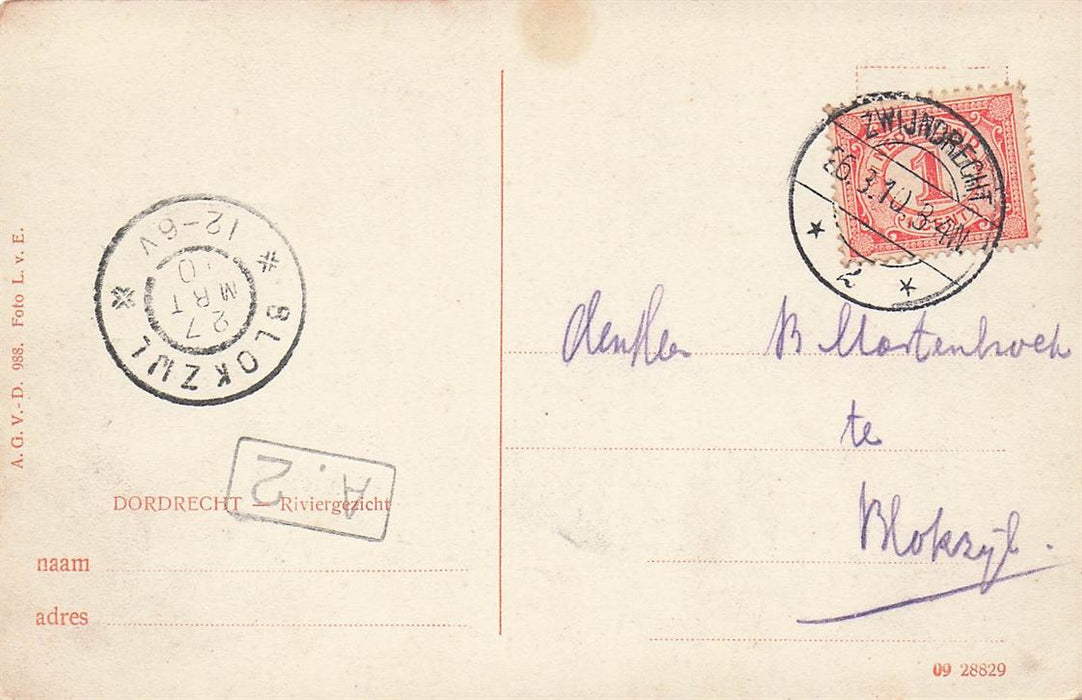 A. G. V.-D. 988. Foto L. v. E.
12-6V
BLOKZIJL
27
MRT
10
A.2
DORDRECHT — Riviergezicht
naam
adres
ZWIJNDRECHT
26.3.10 3-4N.
2
1
den Heer B
te
Blokzijl.
09 28829